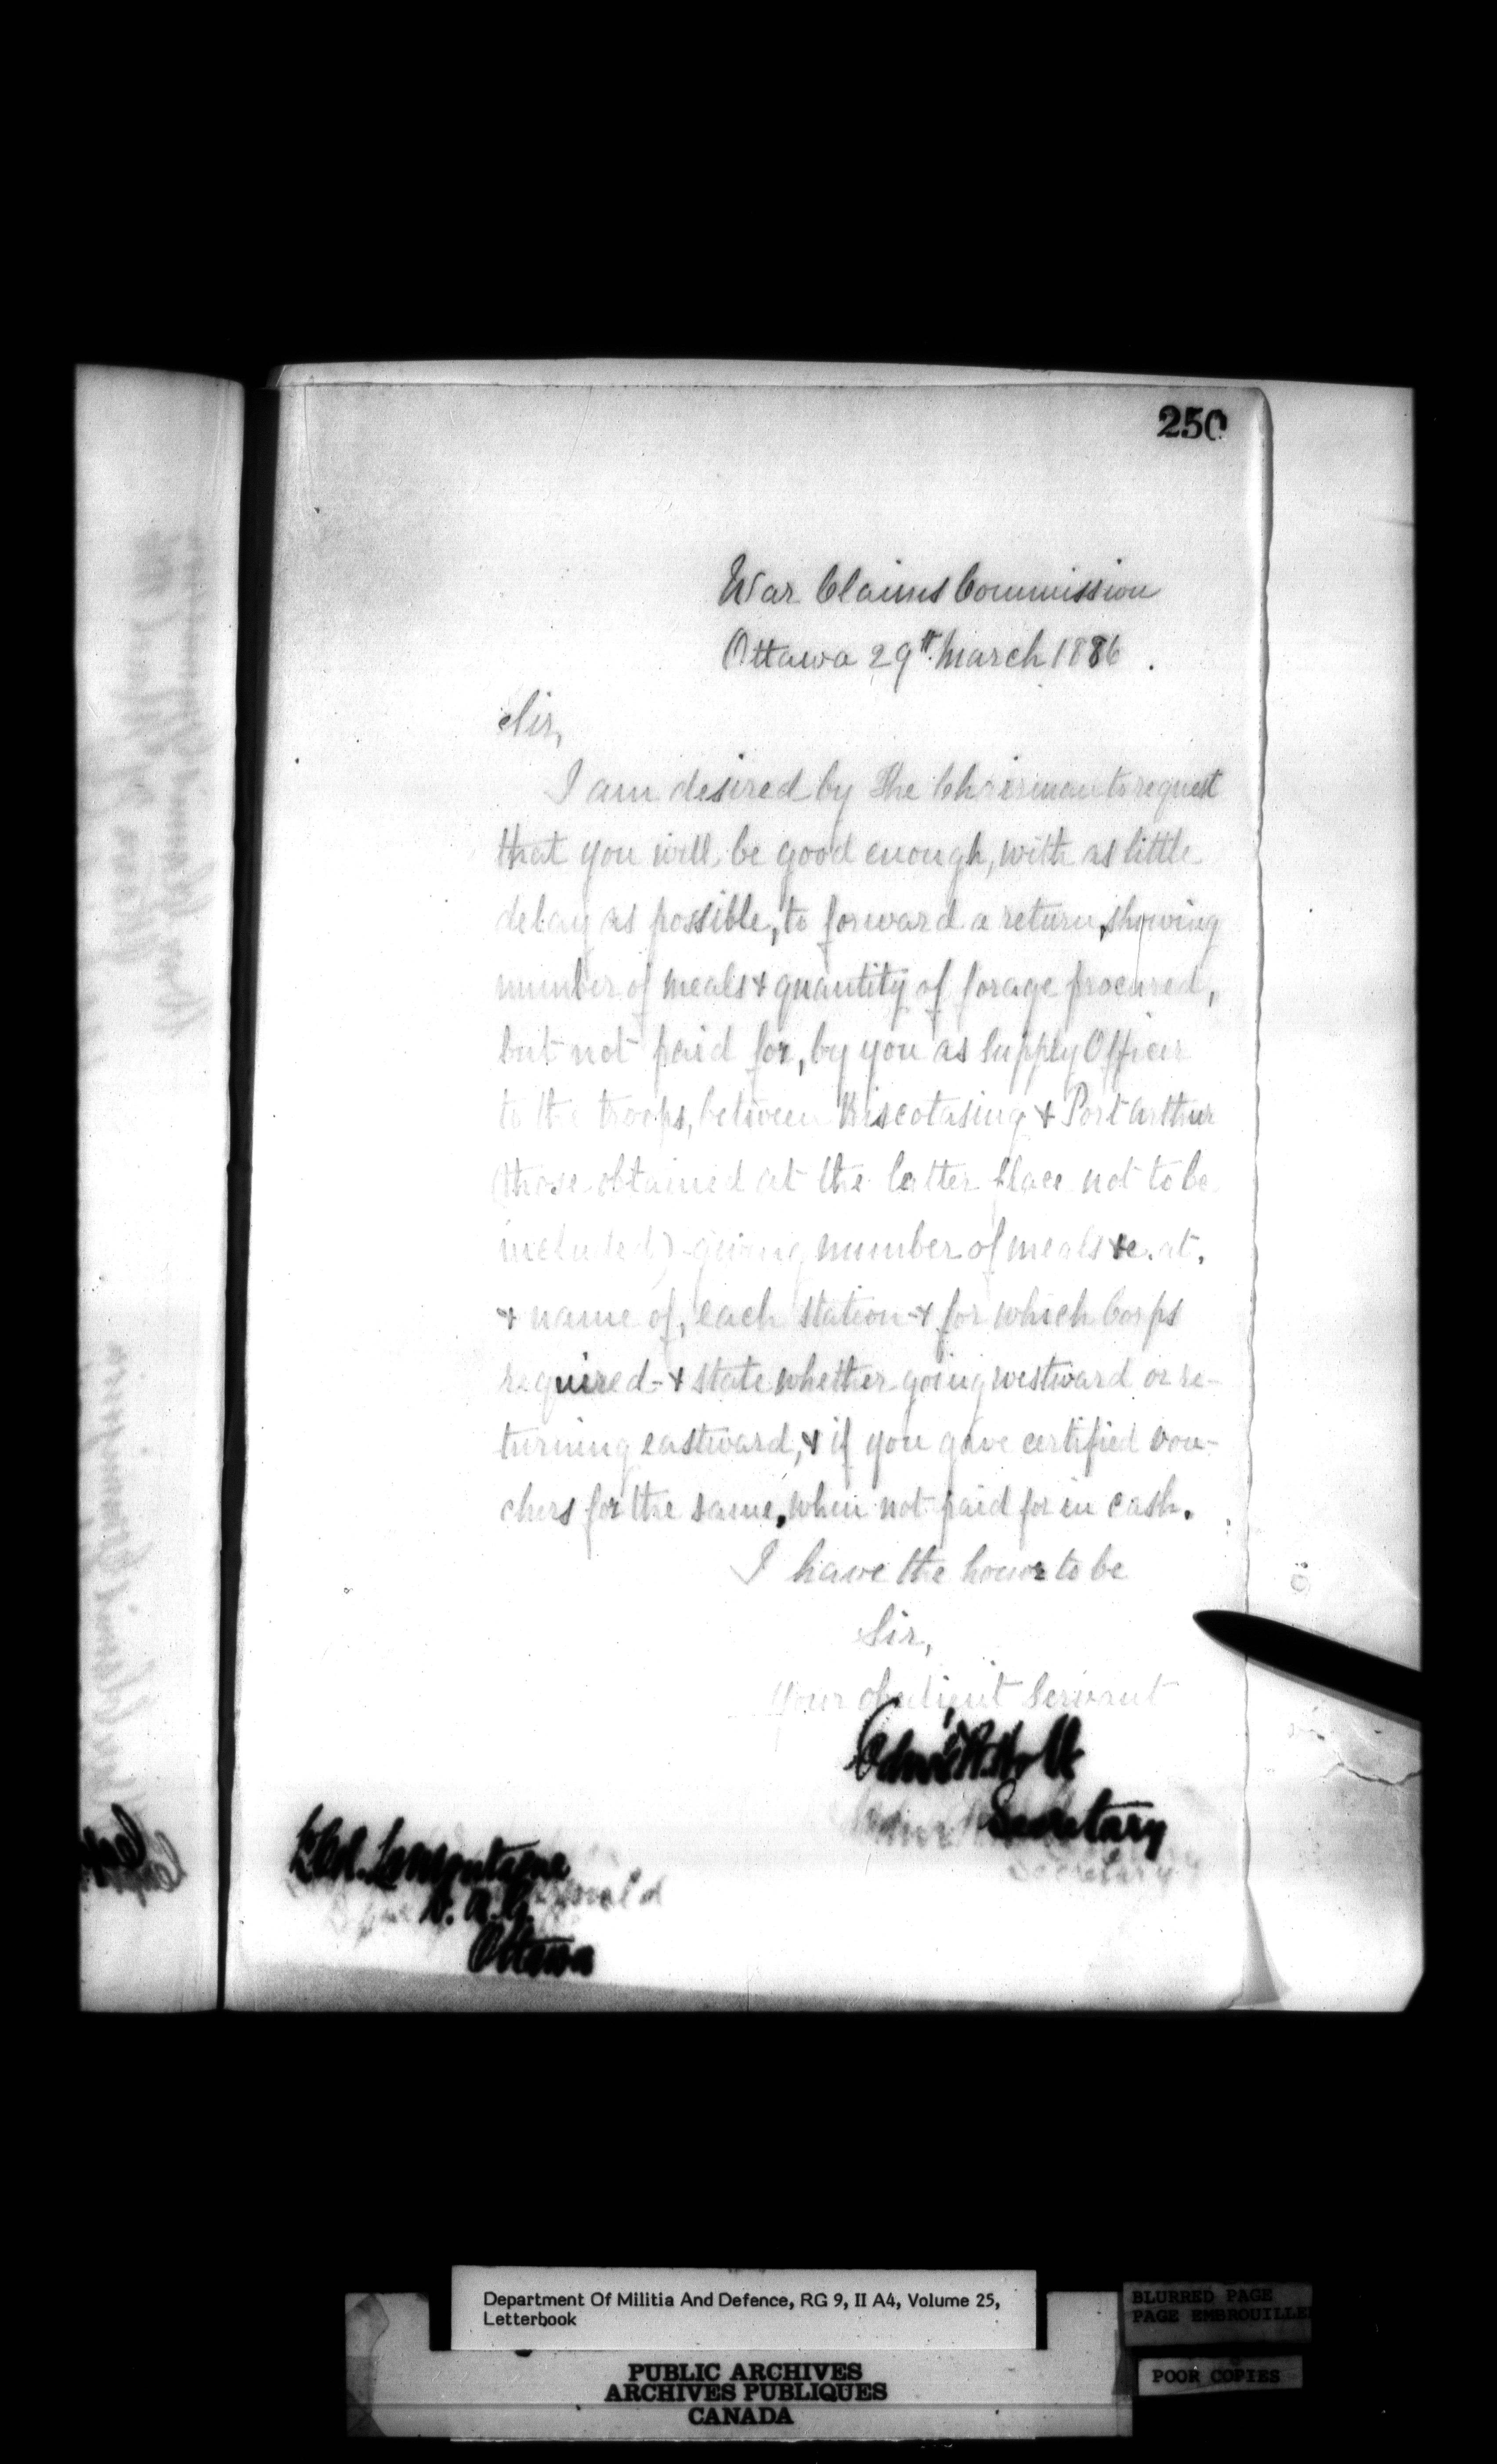 250
War Claims Commission
Ottawa 29th March 1886.
Sir,
I am desired by the Chairman to request
that you will be good enough, with as little
delay as possible, to forward a return, showing
number of meals & quantity of forage procured,
but not paid for, by you as Supply Officer
to the troops, between Biscotasing & Port Arthur
(those obtained at the latter place not to be
included) - giving number of meals &c. at,
& name of, each station - & for which Corps
required - & state whether going westward or re-
turning eastward, & if you gave certified vou-
chers for the same, when not paid for in cash.
I have the honor to be
Sir,
Your obedient Servant
Holt
Secretary
Secretary
Col. Lamontagne
D.A.G.
Ottawa
Department Of Militia And Defence, RG 9, II A4, Volume 25,
Letterbook
BLURRED PAGE
PAGE EMBROUILLEE
POOR COPIES
PUBLIC ARCHIVES
ARCHIVES PUBLIQUES
CANADA